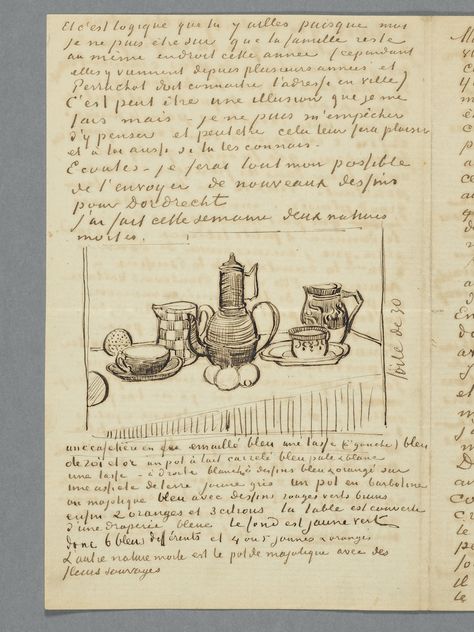 Et c'est logique que tu y ailles puisque moi
je ne puis être sûr que la famille reste
au même endroit cette année (cependant
elles y viennent depuis plusieurs années et
Perruchot doit connaitre l'adresse en ville)
C'est peut être une illusion que je me
fais mais - je ne puis m'empêcher
d'y penser et peutetre cela leur fera plaisir
et à toi aussi si tu les connais.
Ecoutes - je ferai tout mon possible
de t'envoyer de nouveaux dessins
pour Dordrecht
J'ai fait cette semaine deux natures
mortes.
toile de 30
une cafetière en fer emaillé bleu une tasse (à gauche) bleu
de roi et or un pot à lait carrelé bleu pâle & blanc
une tasse - à droite blanche à dessins bleu & orangé sur
une assiette de terre jaune gris un pot en barbotine
ou majolique bleu avec dessins rouges verts bruns
enfin 2 oranges et 3 citrons la table est couverte
d'une draperie bleue le fond est jaune vert
donc 6 bleus différents et 4 ou 5 jaunes & orangés
L'autre nature morte est le pot de majolique avec des
fleurs sauvages